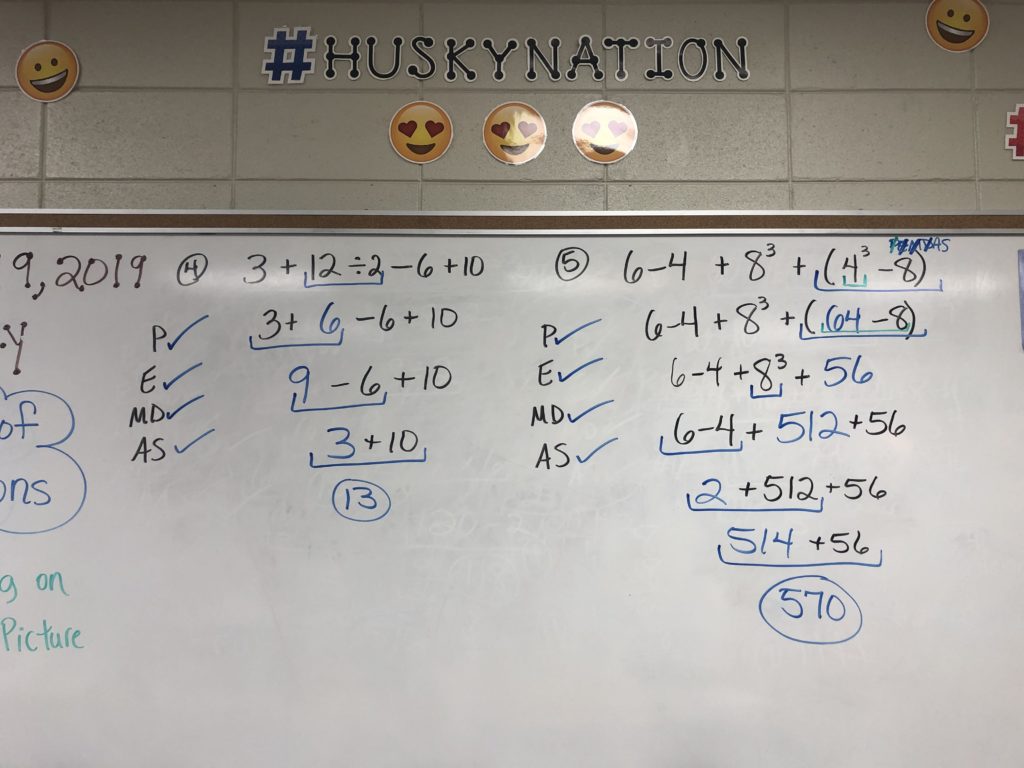 #HUSKYNATION
9, 2019
y
of
ons
g on
Picture
④ 3 + 12 ÷ 2 - 6 + 10
3 + 6 - 6 + 10
9 - 6 + 10
3 + 10
13
P✓
E✓
MD✓
AS✓
⑤ 6-4 + 8³ + (4³ - 8)
6-4 + 8³ + (64 - 8)
6-4 + 8³ + 56
6-4 + 512 + 56
2 + 512 + 56
514 + 56
570
P✓
E✓
MD✓
AS✓